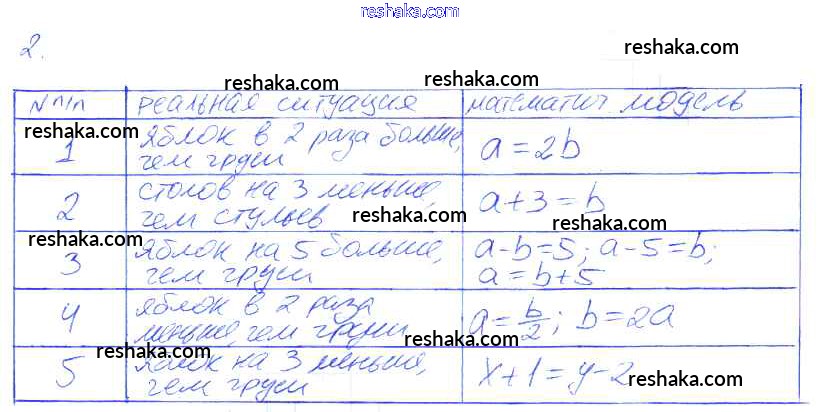 reshaka.com
2.
reshaka.com
reshaka.com reshaka.com
№ п/п реальная ситуация математич модель
reshaka.com
1 яблок в 2 раза больше, чем груш a = 2b
reshaka.com
2 столов на 3 меньше, чем стульев a + 3 = b
reshaka.com reshaka.com
reshaka.com
3 яблок на 5 больше, чем груш a - b = 5; a - 5 = b; a = b + 5
4 яблок в 2 раза меньше, чем груш a = b/2; b = 2a
reshaka.com
reshaka.com
5 на 3 меньше, чем груш x + 1 = y - 2
reshaka.com reshaka.com